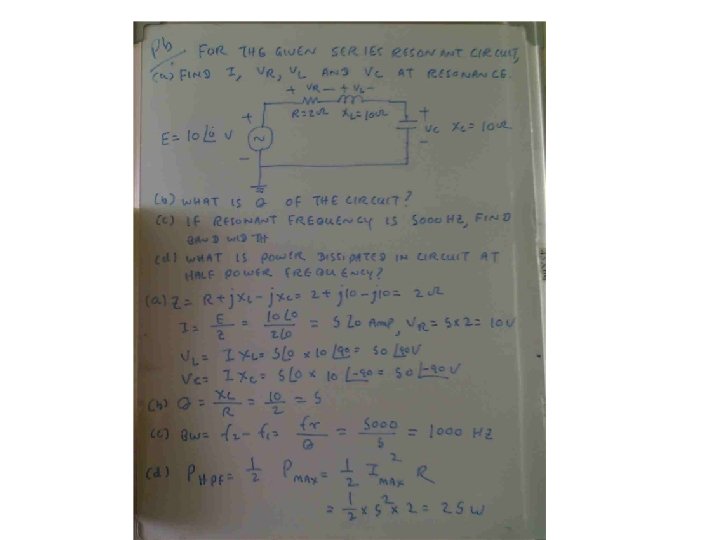 Pb FOR THE GIVEN SERIES RESONANT CIRCUIT,
(a) FIND I, VR, VL AND VC AT RESONANCE.
+ VR — + VL -
R=2Ω XL=10Ω
E= 10∠0 V
+
~
-
+
VC XC= 10Ω
-
(b) WHAT IS Q OF THE CIRCUIT?
(c) IF RESONANT FREQUENCY IS 5000 HZ, FIND
BAND WIDTH
(d) WHAT IS POWER DISSIPATED IN CIRCUIT AT
HALF POWER FREQUENCY?
(a) Z = R+jXL-jXC= 2+j10-j10= 2Ω
I= E/Z = 10∠0/2∠0 = 5∠0 Amp, VR= 5x2= 10V
VL= IXL= 5∠0 x 10∠90= 50∠90V
VC= IXC= 5∠0 x 10∠-90= 50∠-90V
(b) Q = XL/R = 10/2 = 5
(c) BW= f2-f1= fr/Q = 5000/5 = 1000 HZ
(d) PHPF= 1/2 PMAX= 1/2 I²MAX R
= 1/2 x 5² x 2= 25W